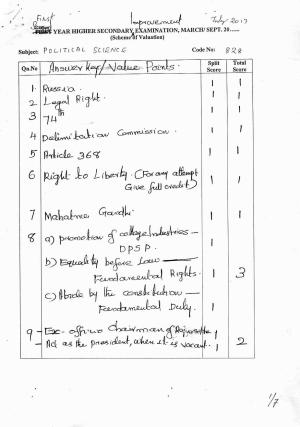 First Improvement July 2017
FIRST YEAR HIGHER SECONDARY EXAMINATION, MARCH/ SEPT. 20......
(Scheme of Valuation)
Subject: POLITICAL SCIENCE Code No: 828
Qn.No Answer Key/Value Points. Split Score Total Score
1 Russia. 1 1
2 Legal Right. 1 1
3 74th 1 1
4 Delimitation Commission. 1 1
5 Article 368 1 1
6 Right to Liberty. (For any attempt 1 1
Give full credit)
7 Mahatma Gandhi 1 1
8 a) promotion of cottage Industries — 1
DPSP.
b) Equality before Law —
Fundamental Rights. 1 3
c) Abide by the constitution —
Fundamental Duty. 1
9 - Ex-officio Chairman of Rajyasabha 1
- Act as the president, when it is vacant. 1 2
1/7